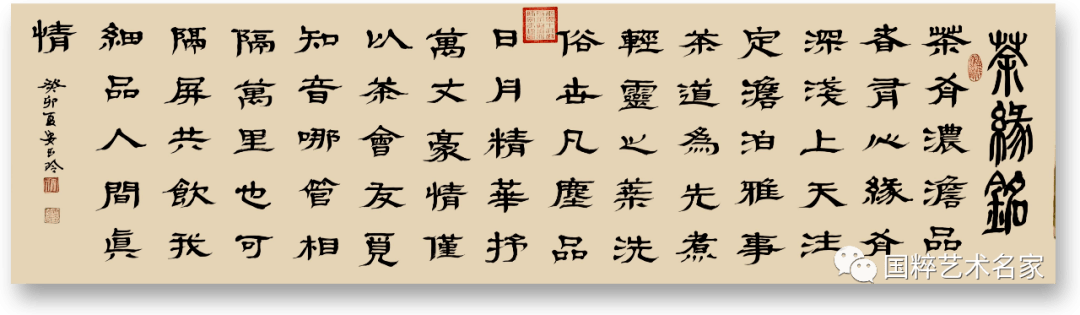 茶緣銘
茶有濃澹品
者有心緣有
深淺上天注
定澹泊雅事
茶道為先煮
輕靈之葉洗
俗世凡塵品
日月精華抒
萬丈豪情僅
以茶會友覓
知音哪管相
隔萬里也可
隔屏共飲我
細品人間眞
情
癸卯夏安玲
国粹艺术名家